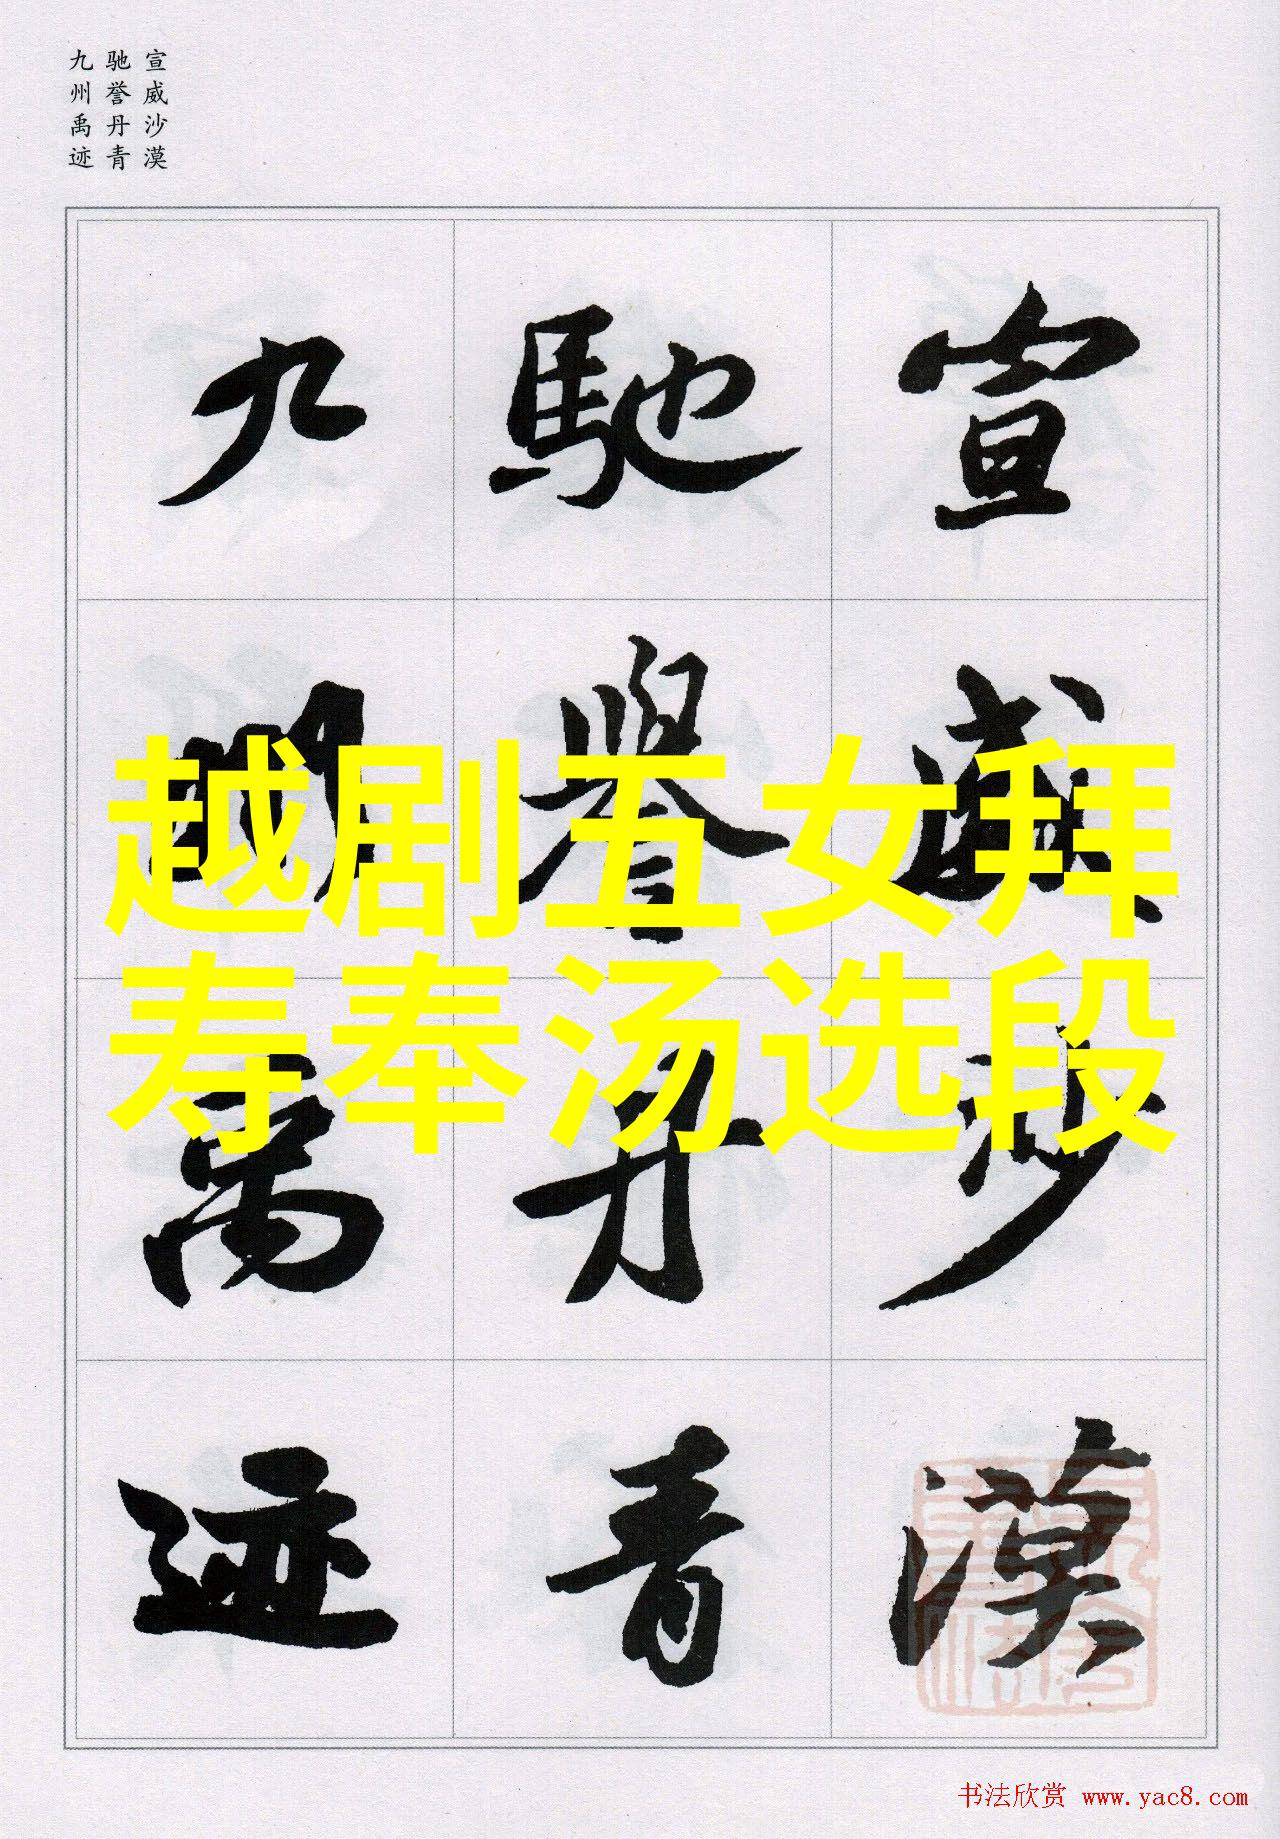 宣威沙漠
驰誉丹青
九州禹迹
宣威沙漠
馳譽丹青
九州禹迹
越剧五女拜
寿奉汤选段
书法欣赏 www.yac8.com